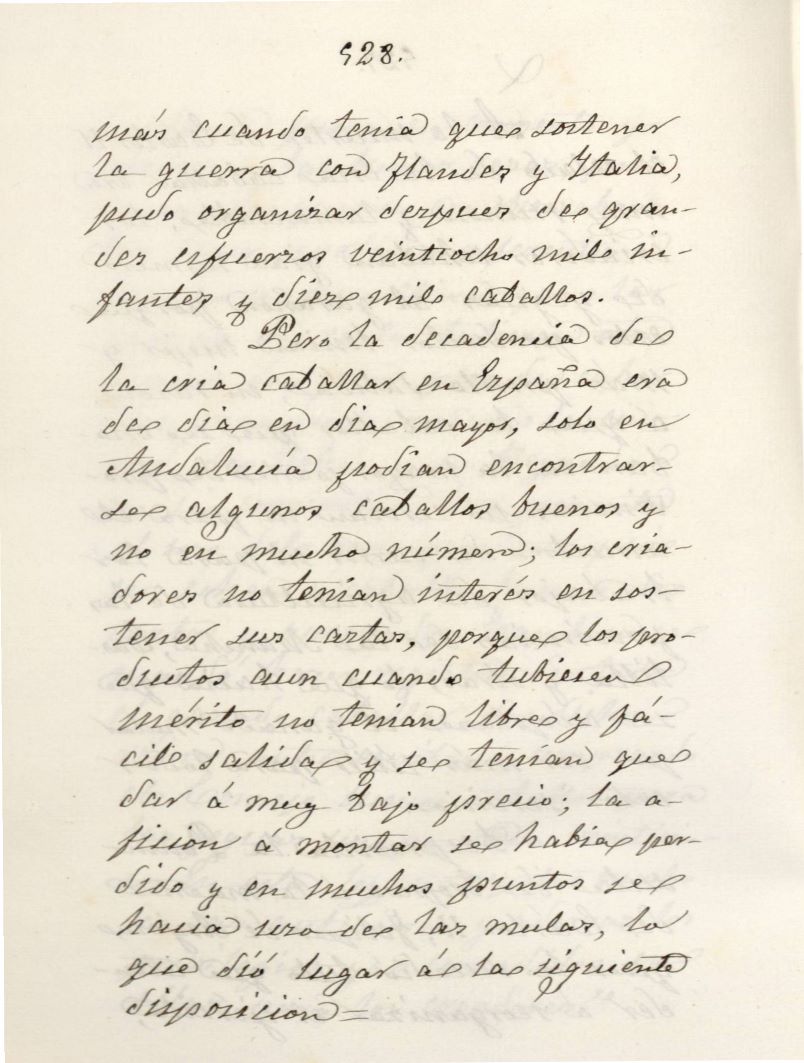 528.
más cuando tenia que sostener
la guerra con Flandes y Italia,
pudo organizar despues de gran-
des esfuerzos veintiocho mil in-
fantes y diez mil caballos.
Pero la decadencia de
la cria caballar en España era
de dia en dia mayor, solo en
Andalucía podian encontrar-
se algunos caballos buenos y
no en mucho número; los cria-
dores no tenian interés en sos-
tener sus castas, porque los pro-
ductos aun cuando tubiesen
mérito no tenian libre y fá-
cil salida y se tenían que
dar á muy bajo precio; la a-
ficion á montar se habia per-
dido y en muchos puntos se
hacia uso de las mulas, lo
que dió lugar á la siguiente
disposicion=